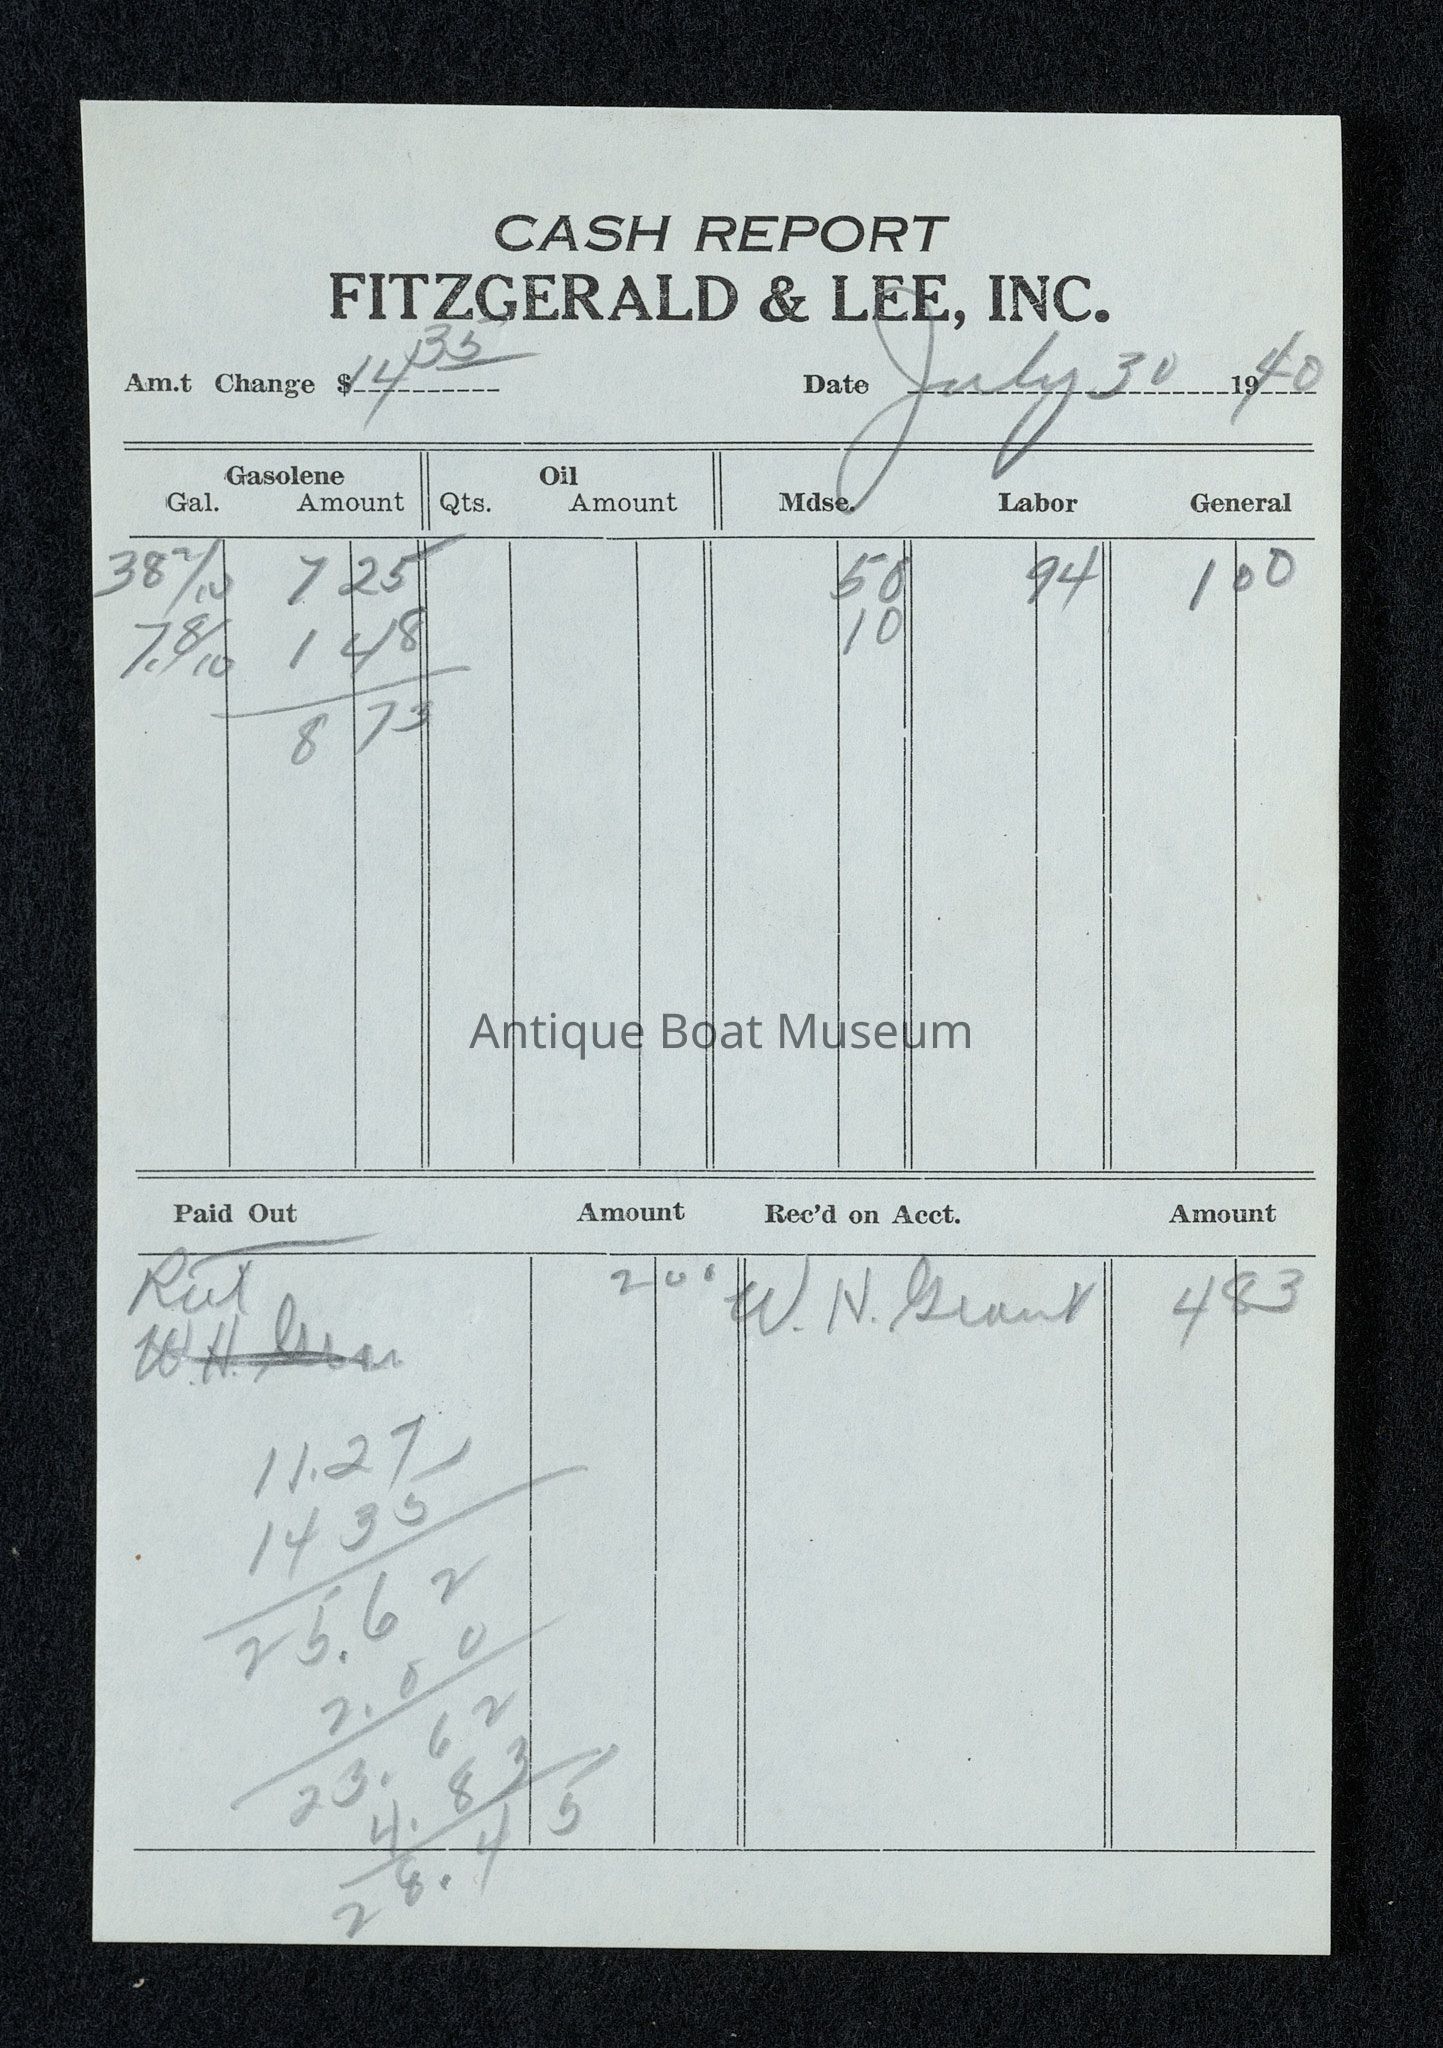 CASH REPORT
FITZGERALD & LEE, INC.
Am.t Change $ 14 35 Date July 30 1940
Gasolene Oil
Gal. Amount Qts. Amount Mdse. Labor General
38 2/10 7 25 50 94 1 00
7. 8/10 1 48 10
8 73
Antique Boat Museum
Paid Out Amount Rec'd on Acct. Amount
2 00 W. H. Grant 4 83
W. H. Gran
11.27
14 35
25.62
2.00
23.62
4.83
28.45